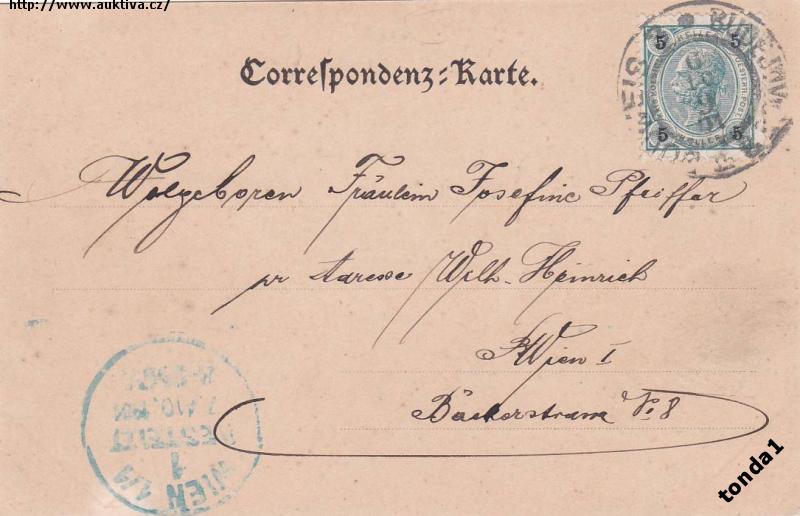 http://www.auktiva.cz/
5 5
5 5
Correspondenz-Karte.
Wolgeboren Fräulein Josefine Pfeiffer
pr Adresse Wilh. Heinrich
Wien I
Bäckerstrasse No 8
BESTELLT
WIEN 1/1
1
tonda1